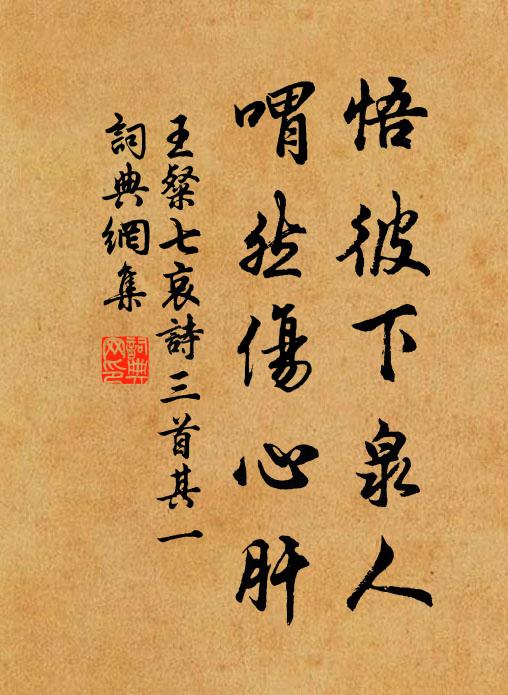 悟彼下泉人
喟然傷心肝
王粲七哀詩三首其一
詞典網集
詞典网印